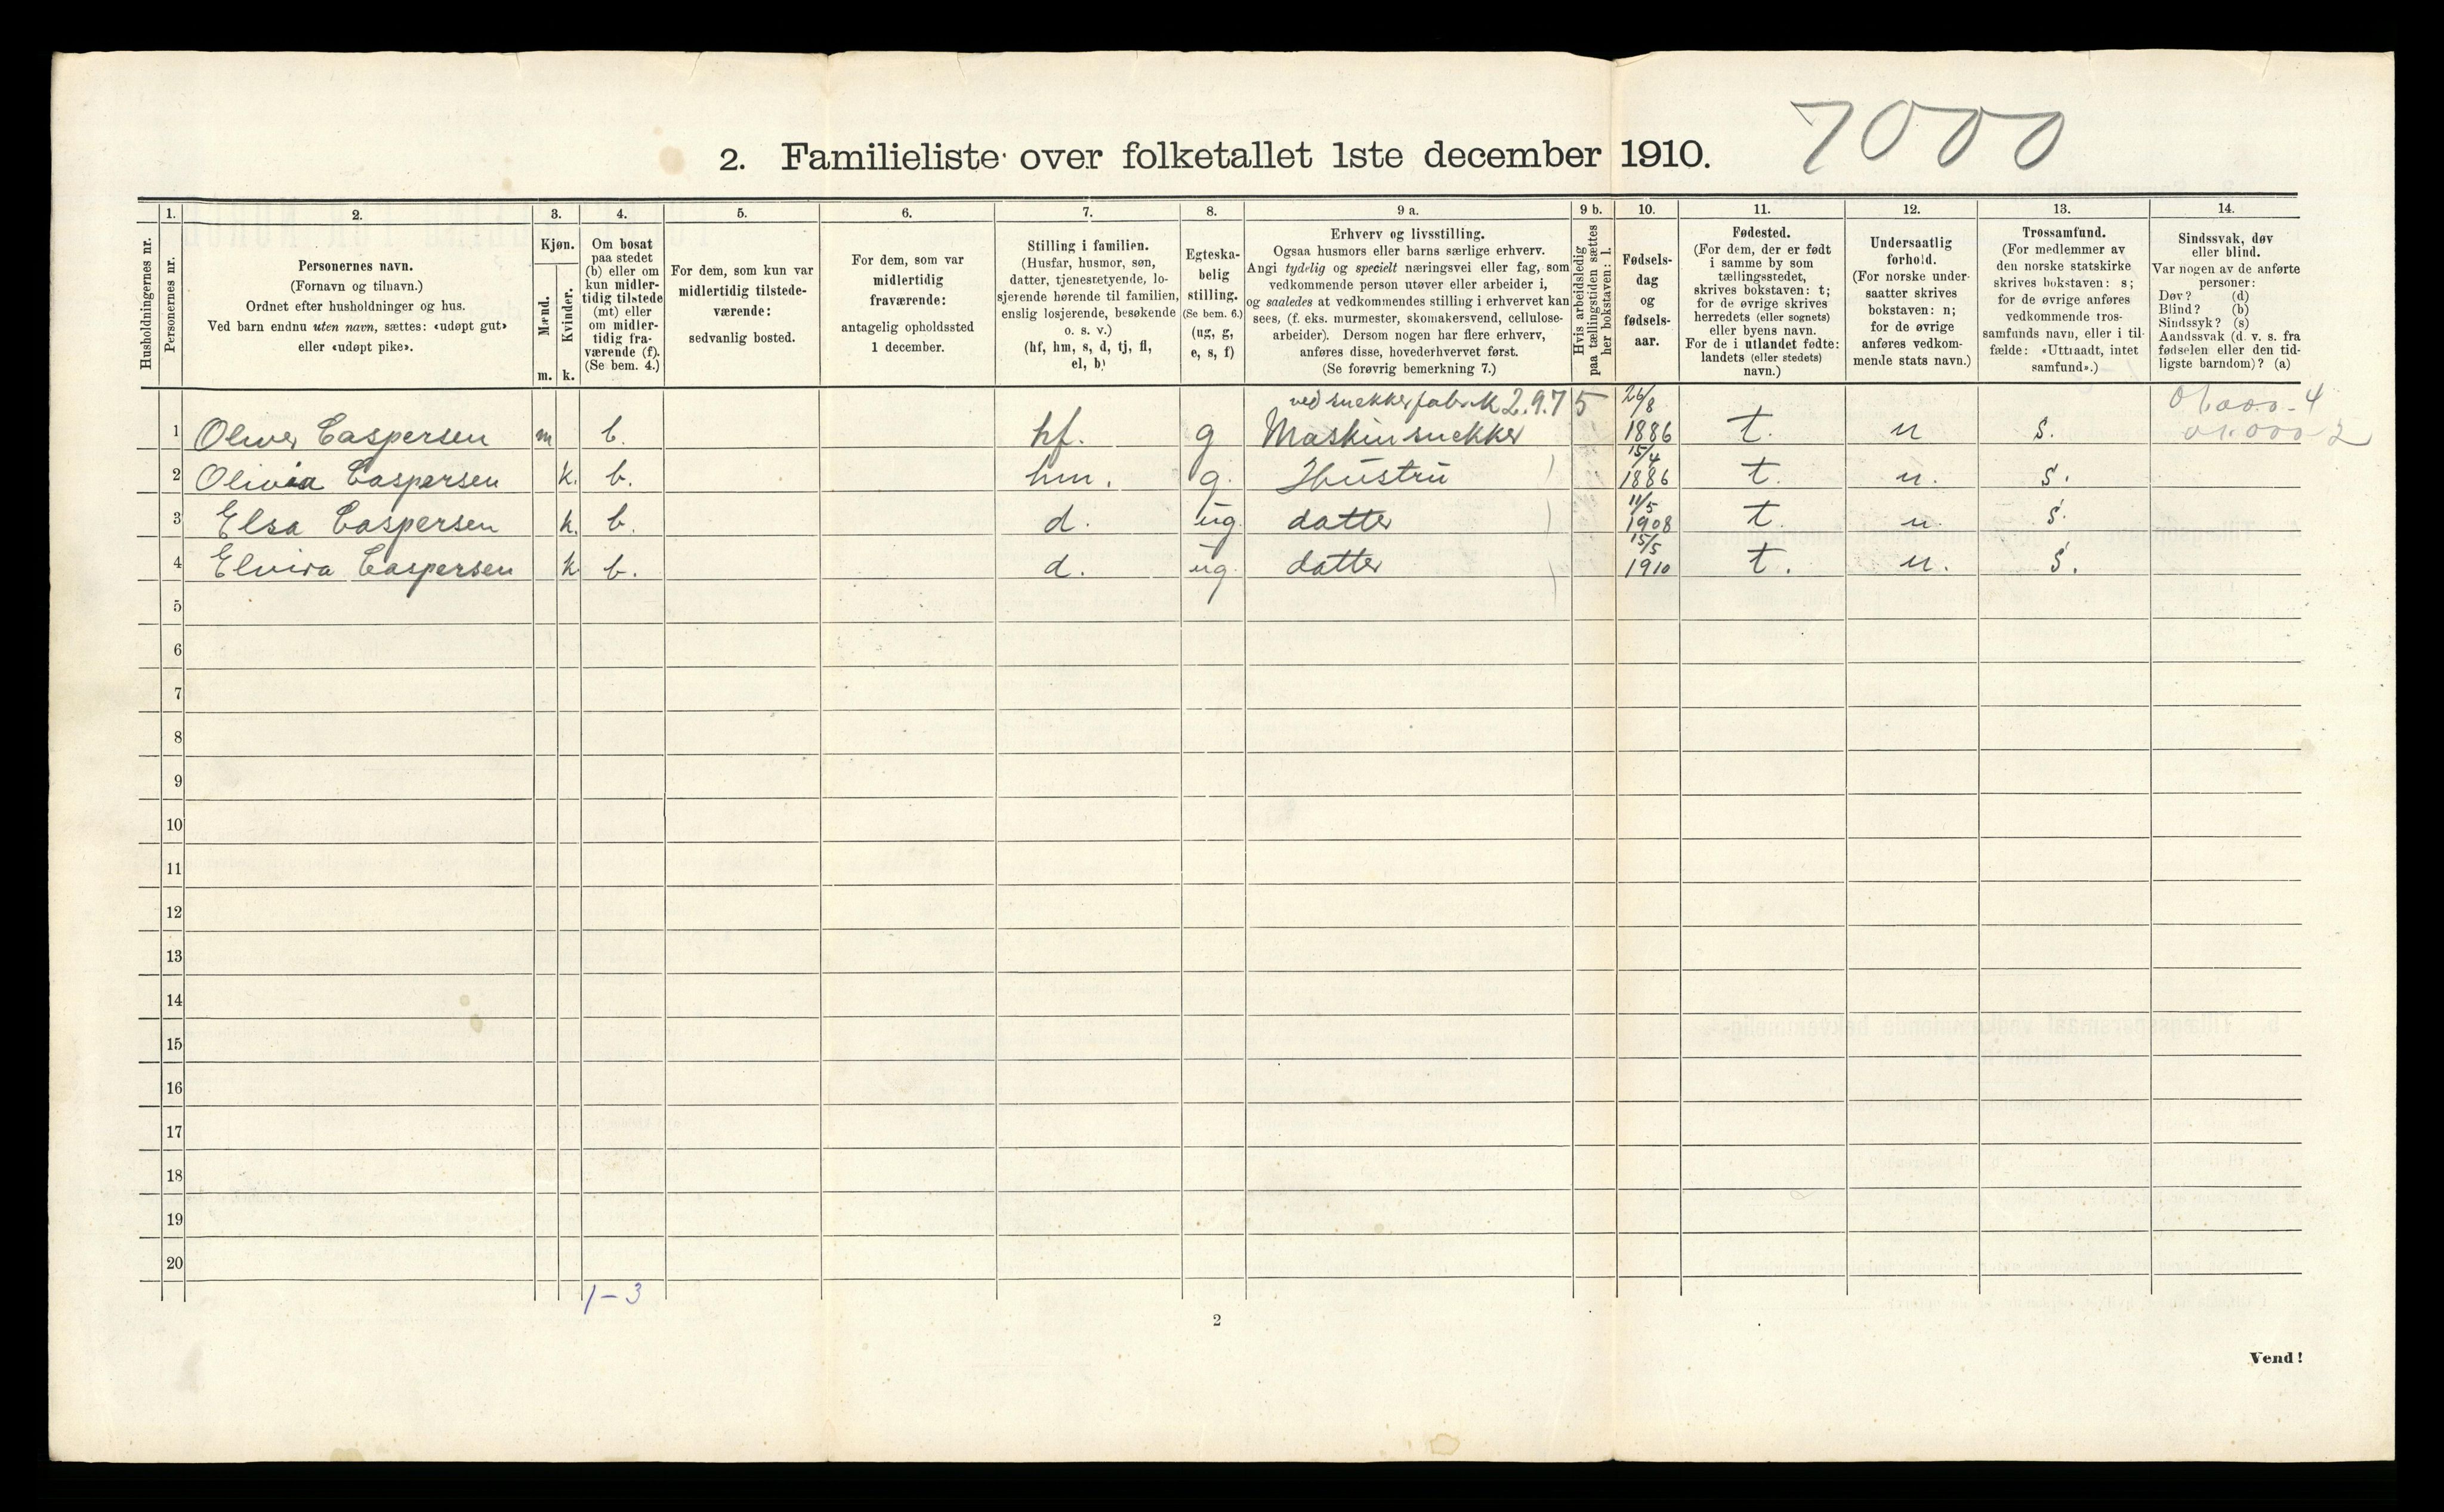 7000
2. Familieliste over folketallet 1ste december 1910.
Husholdningernes nr.
1.
Personernes nr.
2.
Personernes navn.
(Fornavn og tilnavn.)
Ordnet efter husholdninger og hus.
Ved barn endnu uten navn, sættes: «udøpt gut»
eller «udøpt pike».
3.
Kjøn.
Mænd.
Kvinder.
m. k.
4.
Om bosat
paa stedet
(b) eller om
kun midler-
tidig tilstede
(mt) eller
om midler-
tidig fra-
værende (f).
(Se bem. 4.)
5.
For dem, som kun var
midlertidig tilstede-
værende:
sedvanlig bosted.
6.
For dem, som var
midlertidig
fraværende:
antagelig opholdssted
1 december.
7.
Stilling i familien.
(Husfar, husmor, søn,
datter, tjenesretyende, lo-
sjerende hørende til familien,
enslig losjerende, besøkende
o. s. v.)
(hf, hm, s, d, tj, fl,
el, b)
8.
Egteska-
belig
stilling.
(Se bem. 6.)
(ug, g,
e, s, f)
9 a.
Erhverv og livsstilling.
Ogsaa husmors eller barns særlige erhverv.
Angi tydelig og specielt næringsvei eller fag, som
vedkommende person utøver eller arbeider i,
og saaledes at vedkommendes stilling i erhvervet kan
sees, (f. eks. murmester, skomakersvend, cellulose-
arbeider). Dersom nogen har flere erhverv,
anføres disse, hovederhvervet først.
(Se forøvrig bemerkning 7.)
9 b.
Hvis arbeidsledig
paa tællingstiden sættes
her bokstaven: l.
10.
Fødsels-
dag
og
fødsels-
aar.
11.
Fødested.
(For dem, der er født
i samme by som
tællingsstedet,
skrives bokstaven: t;
for de øvrige skrives
herredets (eller sognets)
eller byens navn.
For de i utlandet fødte:
landets (eller stedets)
navn.)
12.
Undersaatlig
forhold.
(For norske under-
saatter skrives
bokstaven: n;
for de øvrige
anføres vedkom-
mende stats navn.)
13.
Trossamfund.
(For medlemmer av
den norske statskirke
skrives bokstaven: s;
for de øvrige anføres
vedkommende tros-
samfunds navn, eller i til-
fælde: «Uttraadt, intet
samfund».)
14.
Sindssvak, døv
eller blind.
Var nogen av de anførte
personer:
Døv? (d)
Blind? (b)
Sindssyk? (s)
Aandssvak (d. v. s. fra
fødselen eller den tid-
ligste barndom)? (a)
ved snekkerfabrik 2.9.7 5 26/8
1 Oliver Caspersen m b. hf. g Maskinsnekker 1886 t. n s.
15/4
2 Olivia Caspersen k. b. hm. g. Hustru 1886 t. n. s.
11/5
3 Elsa Caspersen k. b. d. ug. datter 1908 t. n. s.
15/5
4 Elvira Caspersen k b. d. ug. datter 1910 t. n. s.
5
6
7
8
9
10
11
12
13
14
15
16
17
18
19
20
1-3
2
Vend!